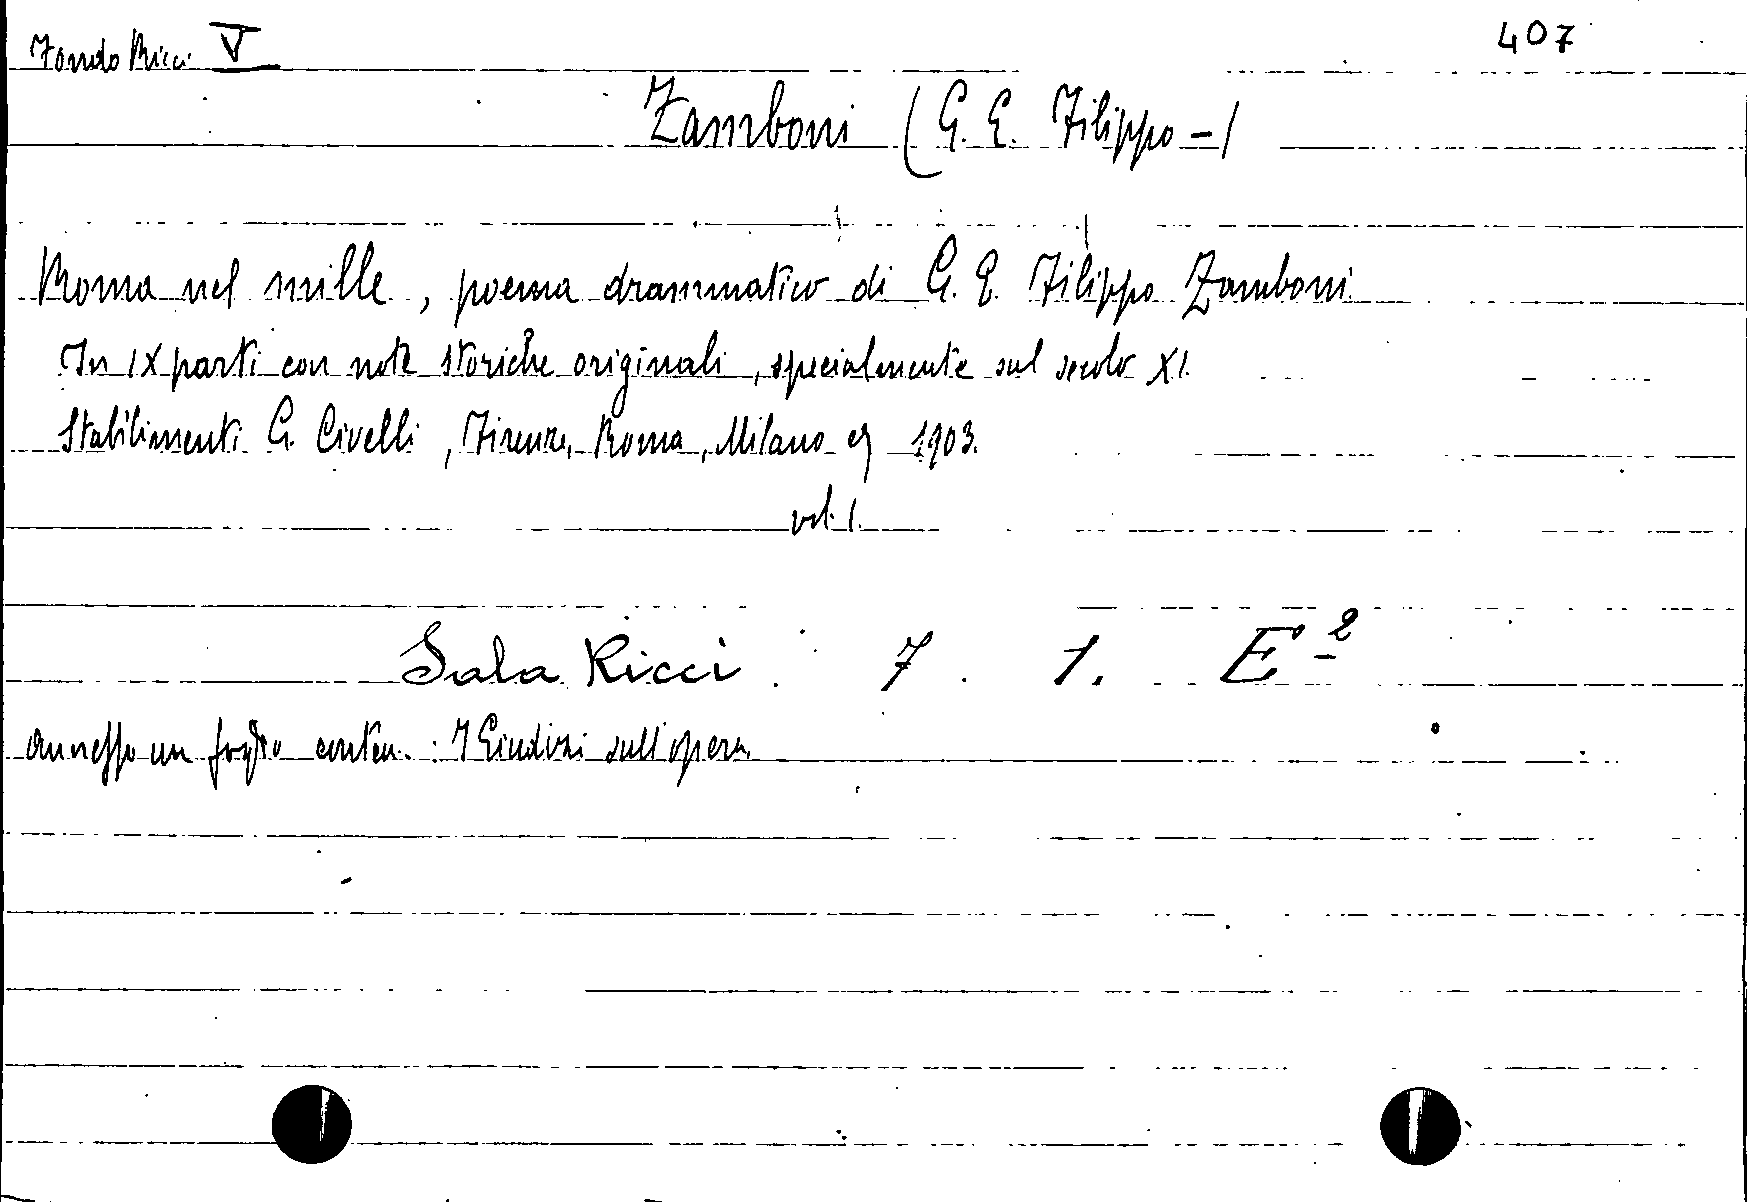 Fondo Ricci V
407
Zamboni (G. E. Filippo -)
Roma nel mille, poema drammatico di G. E. Filippo Zamboni
In IX parti con note storiche originali, specialmente sul secolo XI.
Stabilimenti G. Civelli, Firenze, Roma, Milano 1903.
vol. 1.
Sala Ricci 7 1. E²
annesso un foglio conten.: I Giudizi sull'opera